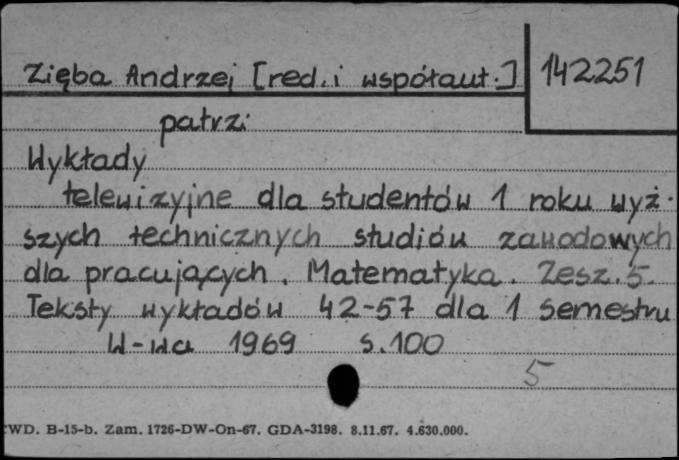 Zięba Andrzej [red. i współaut.]
142251
patrz:
Wykłady
telewizyjne dla studentów 1 roku wyż-
szych technicznych studiów zawodowych
dla pracujących. Matematyka. Zesz. 5.
Teksty wykładów 42-57 dla 1 semestru
W-wa 1969 s. 100
5
WD. B-15-b. Zam. 1726-DW-On-67. GDA-3198. 8.11.67. 4.630.000.